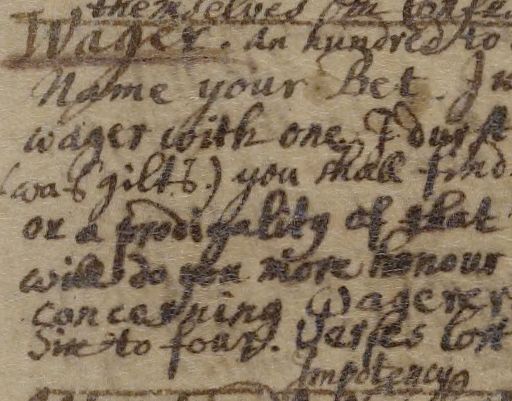 themselves on
Wager. an hundred to
Name your Bet. I
wager with one, I durst
(was gilts.) you shall find
or a prodigality of that
will do you more honour
concerning Wagerer
Six to four. Verses lost
Impotency